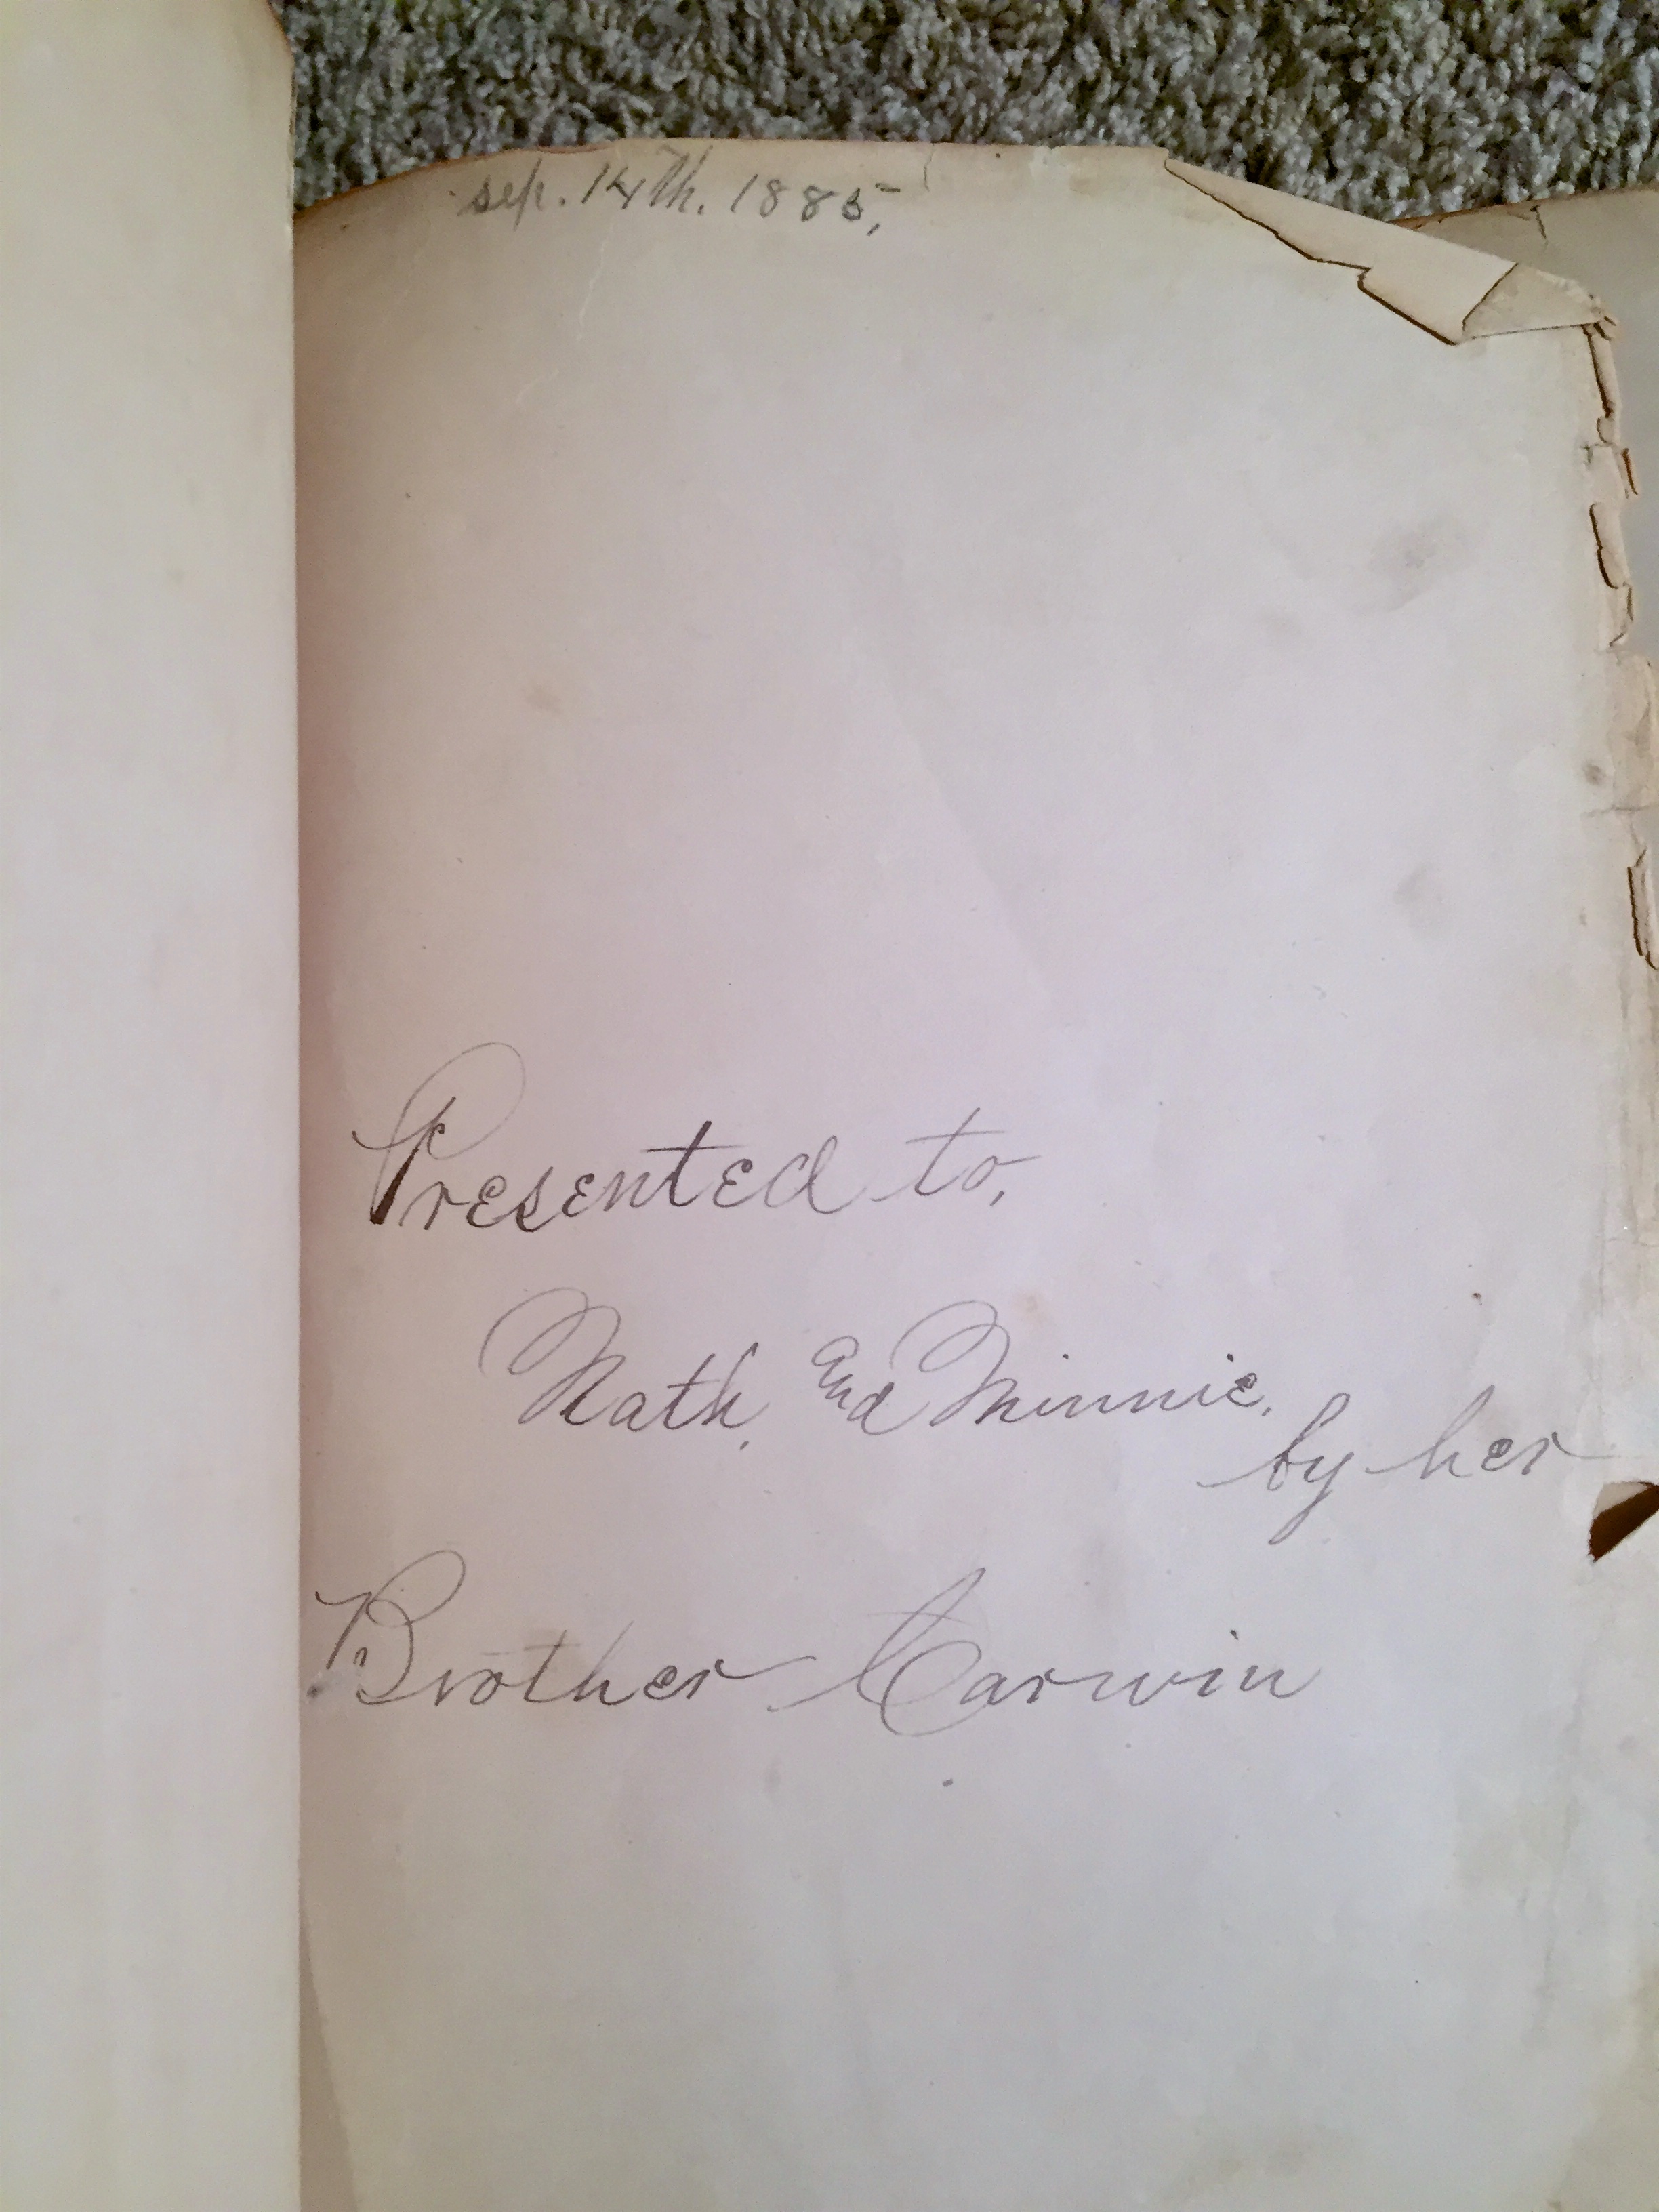 sep. 14th. 1885,
Presented to,
Nath. and Minnie,
by her
Brother Carwin